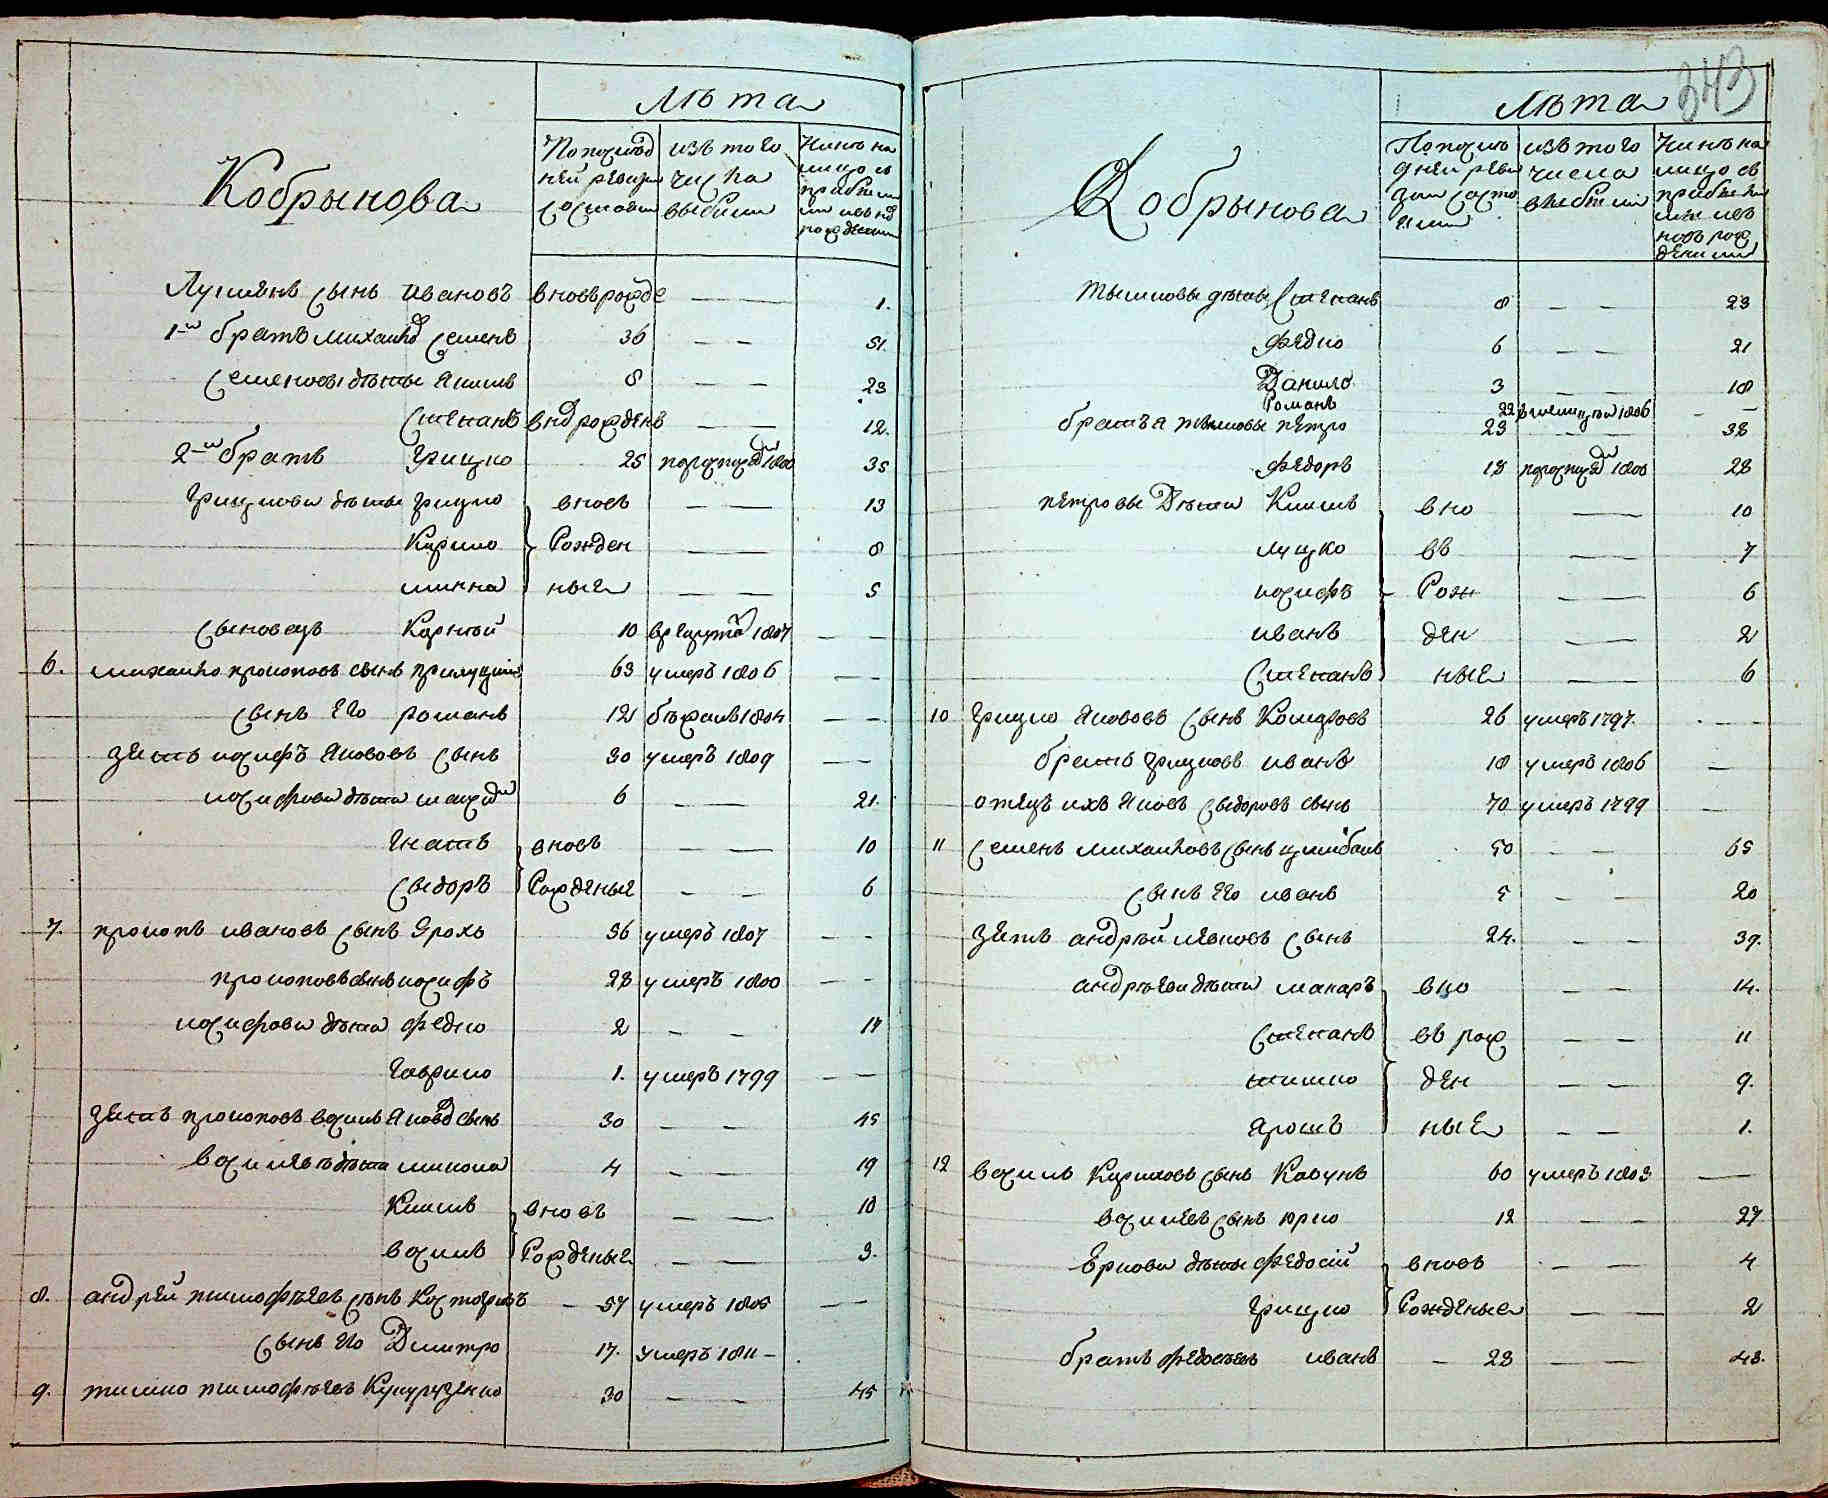 Лѣта
Кобрынова
По послѣд
ней ревизи
состояли
изъ того
числа
выбыли
Нынѣ на
лицо съ
прибыли
ми и внов
рожденни
Лукіянъ сынъ Ивановъ вновьрожде — — 1.
1-й братъ Михайлы Семенъ 36 — — 51.
Семеновы дѣти Якимъ 8 — — 23
Степанъ внорожденъ — — 12.
2-й братъ Грицко 25 1800 35
Грицковы дѣти Грицко вновь — — 13
Кирило Рожден — — 8
ные — — 5
Сыновецъ Корнѣй 10 врекруты 1807 — —
6. Михайло Прокоповъ сынъ 63 умеръ 1806 — —
сынъ его Романъ 12 бѣжалъ 1804 — —
зять Иосифъ Якововъ сынъ 30 умеръ 1809 — —
Иосифовы дѣти 6 — — 21.
Гнатъ вновь — — 10
Сыдоръ Рожденые — — 6
7. Прокопъ Ивановъ сынъ Ярохъ 56 умеръ 1807 — —
Прокоповъ сынъ Иосифъ 28 умеръ 1800 — —
Иосифовы дѣти Федко 2 — — 17
Гаврило 1. умеръ 1799 — —
зять Прокоповъ Василь Яковов сынъ 30 — — 45
Василевы дѣти Микола 4 — — 19
Климъ вновъ — — 10
Василь Рожденые — — 3.
8. Андрей Тимофѣевъ сынъ — 57 умеръ 1805 — —
сынъ его Дмитро 17. умеръ 1811 —
9. Тишко Тимофѣевъ Кукурузенко 30 — 45
343
Лѣта
Кобрынова
По послѣ
дней реви
зии состо
яли
изъ того
числа
выбыли
Нынѣ на
лицо съ
прибыли
ми и въ
новь рож
деними
Тышковы дѣти Степанъ 8 — — 23
Федко 6 — — 21
Данило 3 — — 18
Романъ 22 1806 — —
братья Тышковы Петро 23 — — 38
Федоръ 13 1800 28
Петровы дѣти Климъ вно — 10
Луцко въ — 7
Иосифъ Рож — 6
Иванъ ден — 2
Степанъ ные — 6
10 Грицко Якововъ сынъ 26 умеръ 1797. — —
братъ Грицковъ Иванъ 18 умеръ 1806 —
отецъ ихъ Яковъ Сыдоровъ сынъ 70 умеръ 1799 —
11 Семенъ Михайловъ сынъ Цимбалъ 50 — — 65
сынъ его Иванъ 5 — — 20
зять Андрѣй Левковъ сынъ 24. — — 39.
Андрѣевы дѣти Макаръ вно — — 14.
Степанъ въ рож — — 11
Тишко ден — — 9.
Ярошъ ные — — 1.
12 Василь Кириловъ сынъ Кавунъ 60 умеръ 1803 —
Василевъ сынъ Юрко 12 — — 27
Юркови дѣти Федосій вновь — — 4
Грицко Рожденые — — 2
братъ Федосѣевъ Иванъ — 28 — — 43.